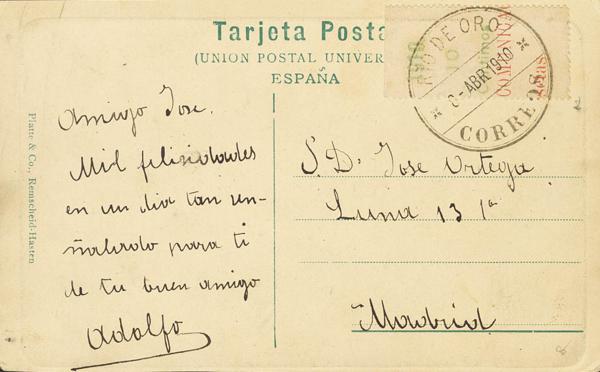 Tarjeta Posta
(UNION POSTAL UNIVER
ESPAÑA
RIO DE ORO
ABR 1910
CORREOS
Amigo Jose.
Mil felisidades
en un dia tan señ-
ñalado para ti
de tu buen amigo
Adolfo
S. D. Jose Ortega
Luna 13 1ª
Madrid
Platte & Co., Remscheid-Hasten